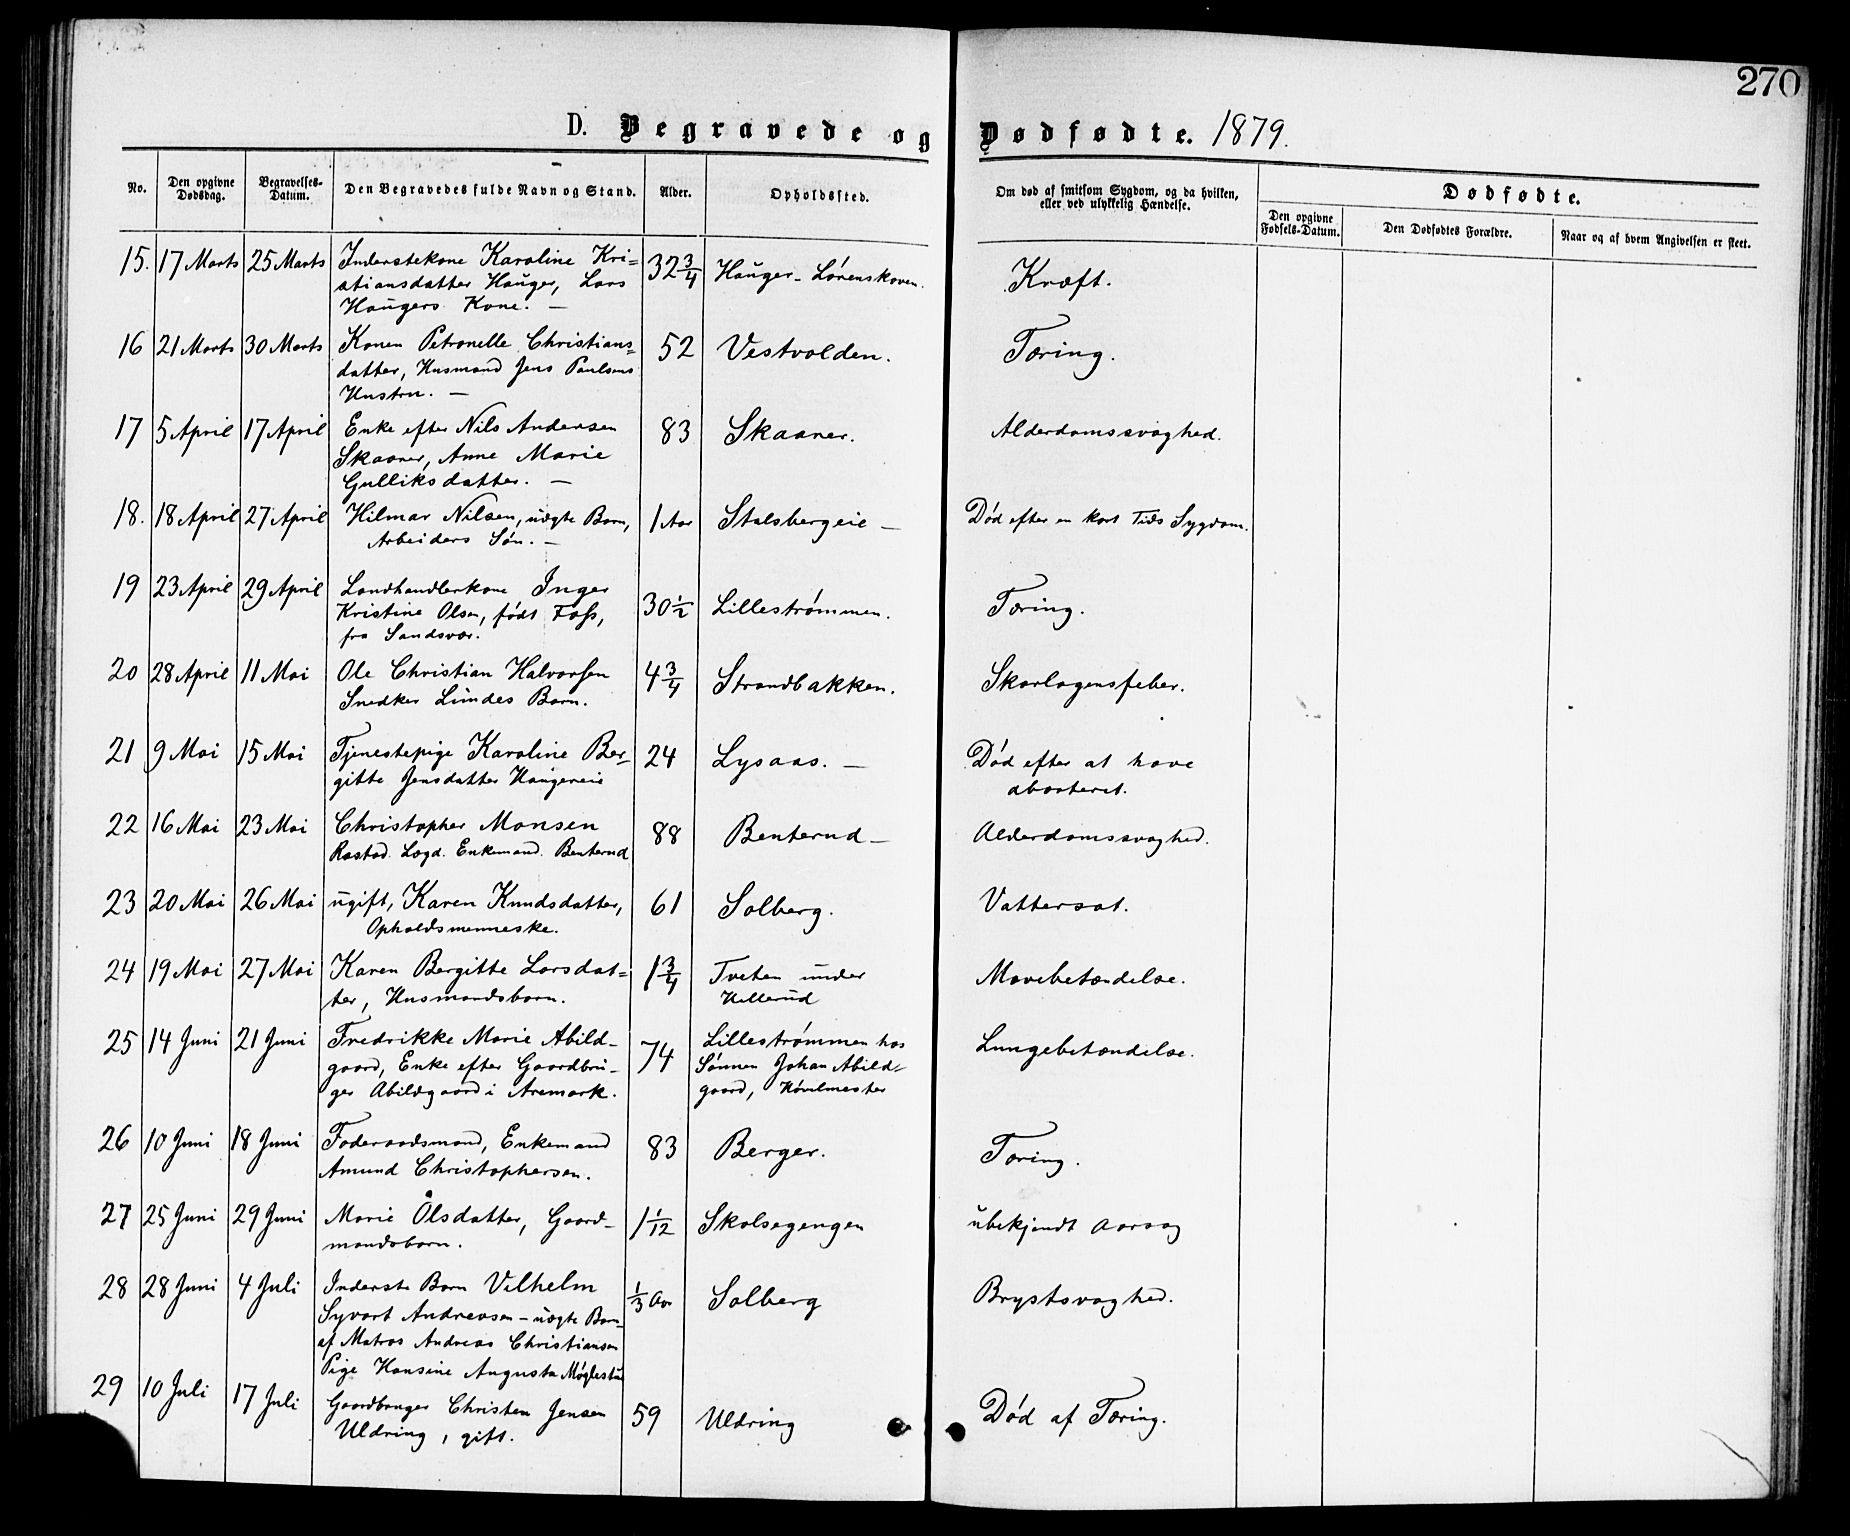 270
D. Begravede og Dødfødte. 1879.
No. Den opgivne Dødsdag. Begravelses-Datum. Den Begravedes fulde Navn og Stand. Alder. Opholdssted. Om død af smitsom Sygdom, og da hvilken, eller ved ulykkelig Hændelse. Dødfødte.
Den opgivne Fødsels-Datum. Den Dødfødtes Forældre. Naar og af hvem Angivelsen er skeet.
15. 17 Marts 25 Marts Inderstekone Karoline Kri- 32 3/4 Hauger - Lørenskoven. Kræft.
stiansdatter Hauger, Lars
Haugers Kone. —
16 21 Marts 30 Marts Konen Petronelle Christians- 52 Vestvolden. Tæring.
datter, Husmand Jens Paulsens
Hustru. —
17 5 April 17 April Enke efter Nils Andersen 83 Skaarer. Alderdomssvaghed.
Skaarer, Anne Marie
Gulliksdatter. —
18. 18 April 27 April Hilmar Nilsen, uægte Barn, 1 Aar Stalsbergeie — Død efter en kort Tids Sygdom.
Arbeiders Søn. —
19 23 April 29 April Landhandlerkone Inger 30 1/2 Lillestrømmen. Tæring.
Kristine Olsen, født Foss,
fra Sandsvær.
20 28 April 11 Mai Ole Christian Halvorsen 4 3/4 Strandbakken. Skarlagensfeber.
Snedker Lundes Barn.
21 9 Mai 15 Mai Tjenestepige Karoline Ber- 24 Lysaas. — Død efter at have
gitte Jensdatter Haugereie aborteret.
22 16 Mai 23 Mai Christopher Monsen 88 Benterud — Alderdomssvaghed.
Rastad. Lægd. Enkemand. Benterud
23 20 Mai 26 Mai ugift, Karen Knudsdatter, 61 Solberg. Vattersot.
Opholdsmenneske.
24 19 Mai 27 Mai Karen Bergitte Larsdat- 1 3/4 Tveten under Mavebetændelse.
ter, Husmandsbarn. Hellerud
25 14 Juni 21 Juni Fredrikke Marie Abild- 74 Lillestrømmen hos Lungebetændelse.
gaard, Enke efter Gaardbru- Sønnen Johan Abild-
ger Abildgaard i Aremark. gaard, Høvelmester
26 10 Juni 18 Juni Føderaadsmand, Enkemand 83 Berger. Tæring.
Amund Christophersen.
27 25 Juni 29 Juni Marie Olsdatter, Gaard- 1 1/12 Skalsegengen ubekjendt Aarsag
mandsbarn.
28 28 Juni 4 Juli Inderste Barn Vilhelm 1/3 Aar Solberg Brystsvaghed.
Syvart Andreasen - uægte Barn
af Matros Andreas Christiansen
Pige Hansine Augusta Møglestu
29 10 Juli 17 Juli Gaardbruger Christen Jensen 59 Uldring Død af Tæring.
Uldring, gift.